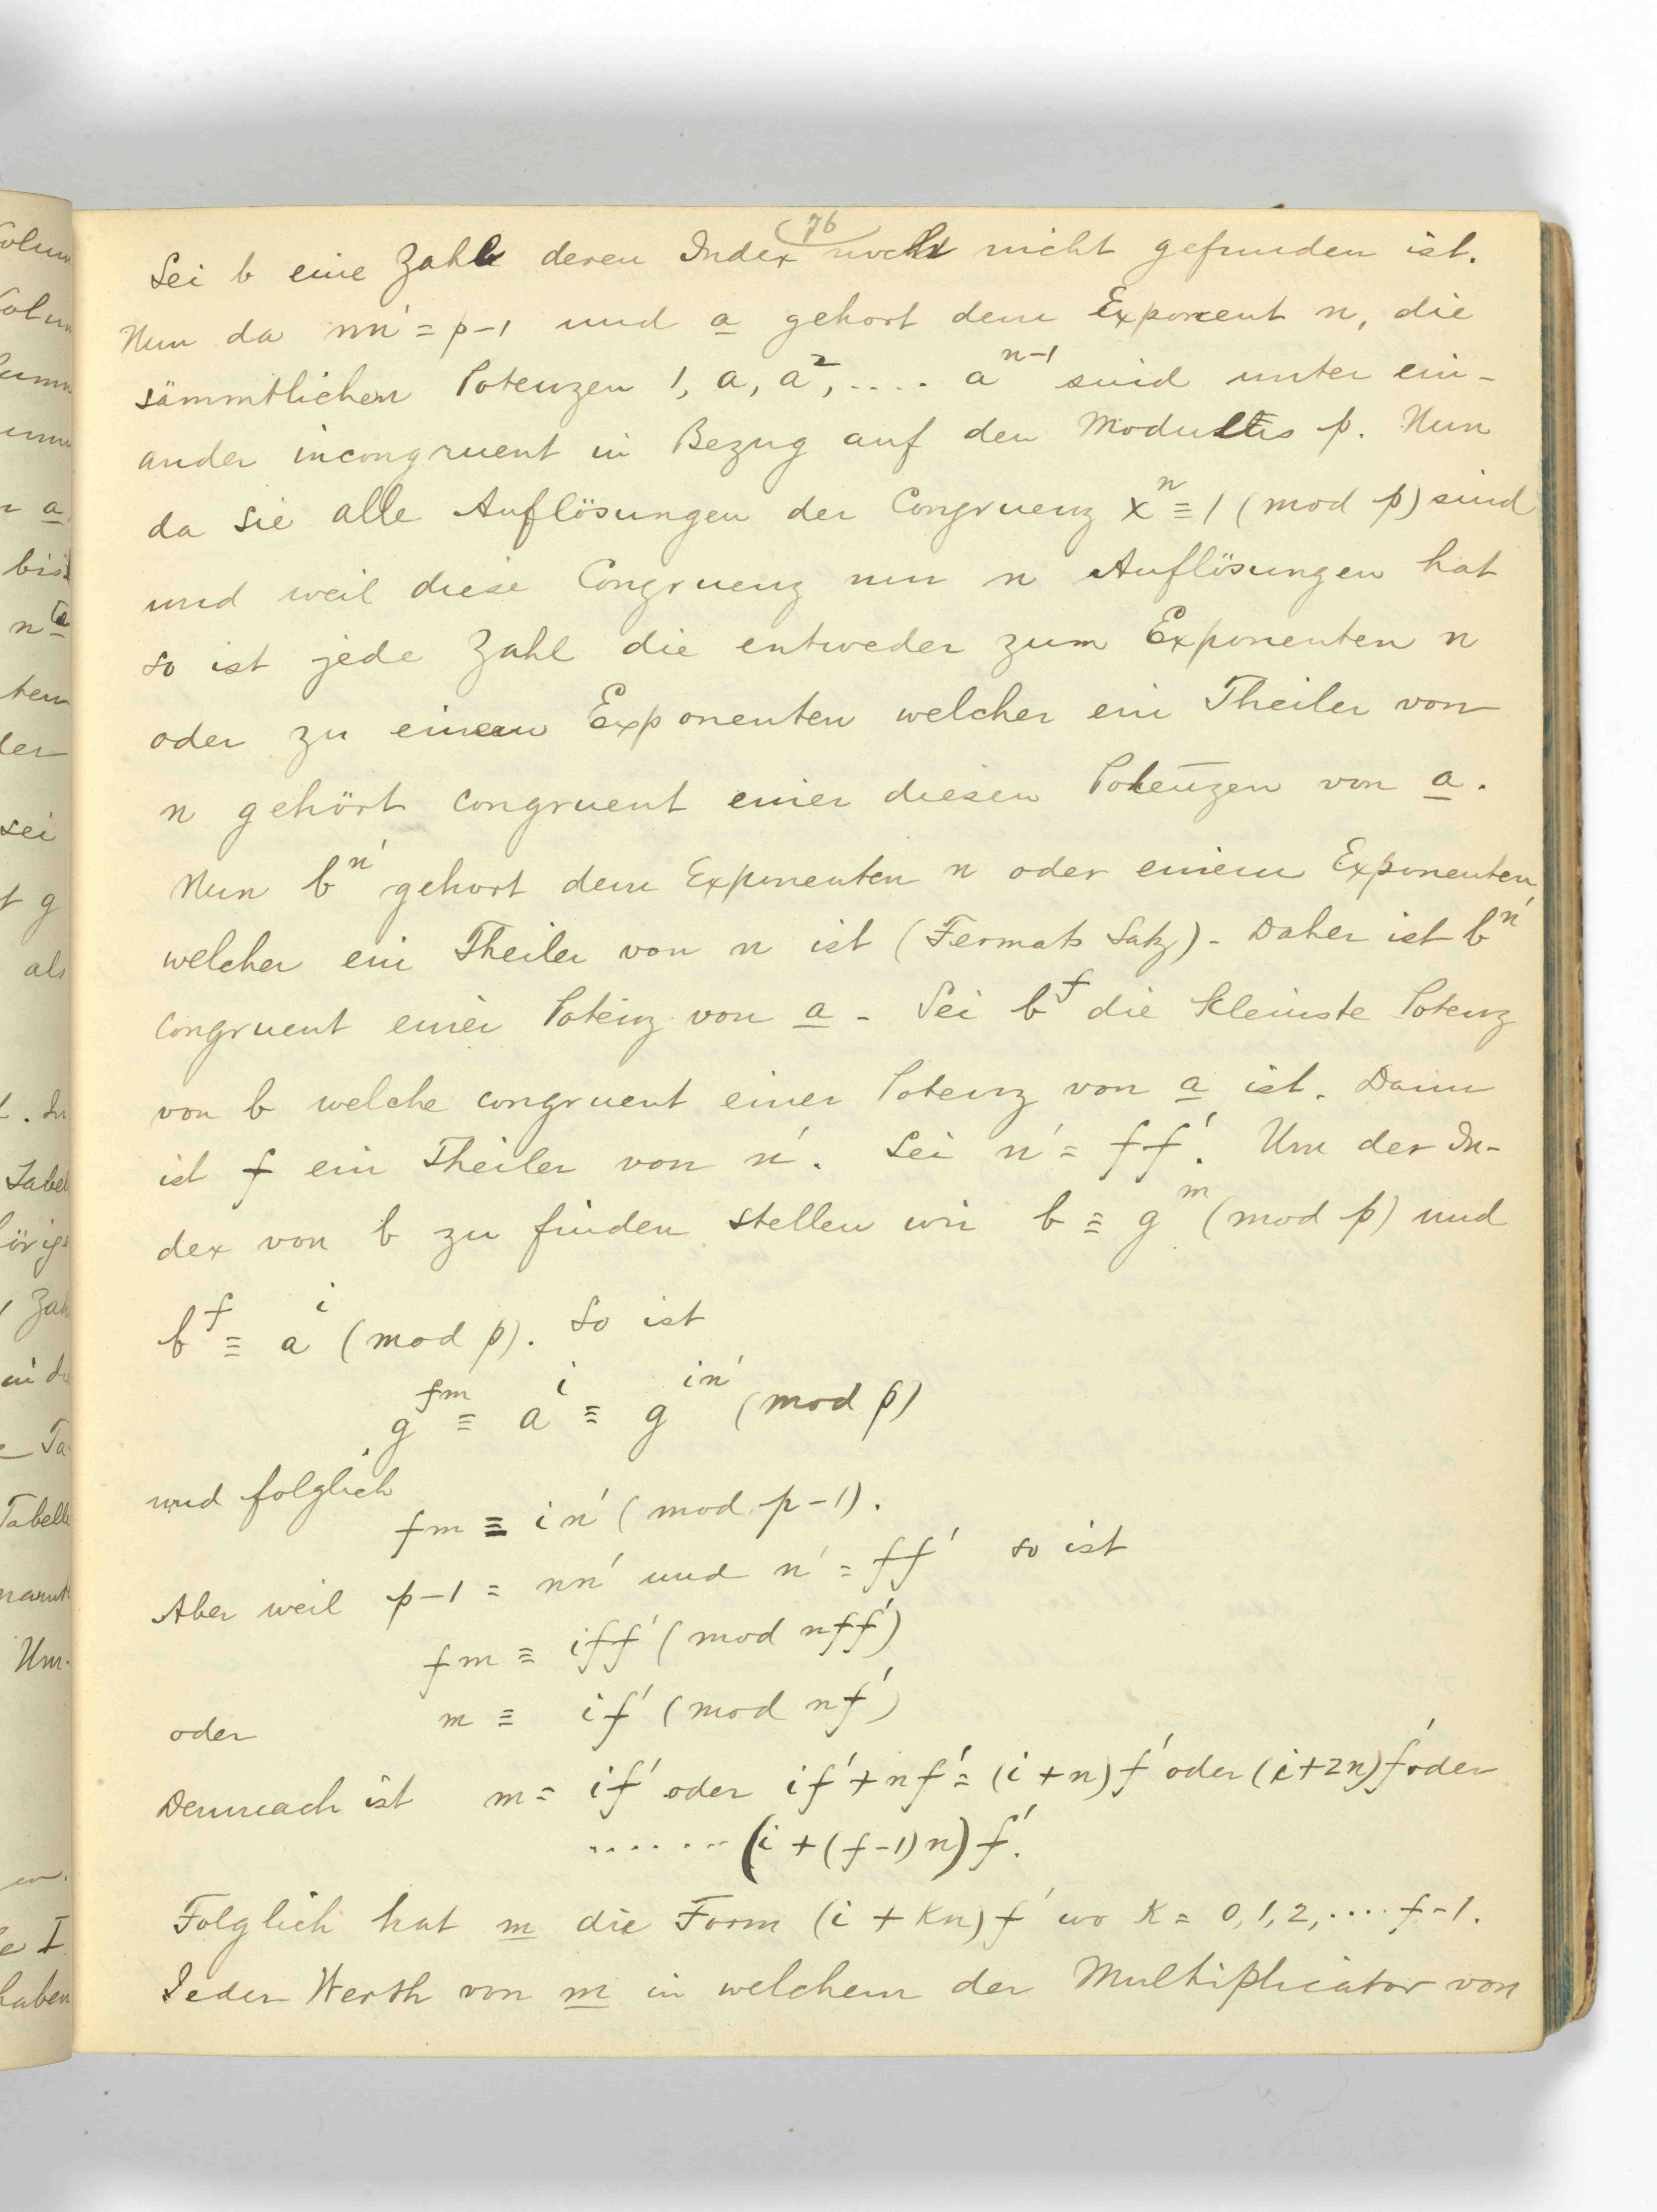 76
Sei b eine Zahl deren Index noch nicht gefunden ist.
Nun da nn' = p-1 und a gehort dem Exponent n, die
sämmtlichen Potenzen 1, a, a², .... aⁿ⁻¹ sind unter ein-
ander incongruent in Bezug auf den Modulus p. Nun
da sie alle Auflösungen der Congruenz xⁿ ≡ 1 (mod p) sind
und weil diese Congruenz nur n Auflösungen hat
so ist jede Zahl die entweder zum Exponenten n
oder zu einem Exponenten welcher ein Theiler von
n gehört congruent einer diesen Potenzen von a.
Nun b^n' gehort dem Exponenten n oder einem Exponenten
welcher ein Theiler von n ist (Fermats Satz) - Daher ist b^n'
congruent einer Potenz von a - Sei b^f die kleinste Potenz
von b welche congruent einer Potenz von a ist. Dann
ist f ein Theiler von n'. Sei n' = ff'. Um der In-
dex von b zu finden stellen wir b ≡ g^m (mod p) und
b^f ≡ a^i (mod p). So ist
g^fm ≡ a^i ≡ g^in' (mod p)
und folglich
fm ≡ in' (mod p-1).
Aber weil p-1 = nn' und n' = ff' so ist
fm ≡ iff' (mod nff')
oder m ≡ if' (mod nf')
Demnach ist m = if' oder if' + nf' = (i+n)f' oder (i+2n)f' oder
....... (i+(f-1)n)f'.
Folglich hat m die Form (i + Kn)f' wo K = 0, 1, 2, .... f-1.
Jeder Werth von m in welchem der Multiplicator von